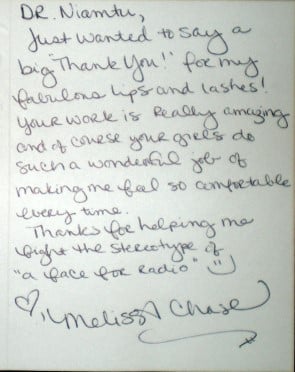 DR. Niamtu,
Just wanted to say a
big "Thank You!" for my
fabulous lips and lashes!
Your work is really amazing
and of course your girls do
such a wonderful job of
making me feel so comfortable
every time.
Thanks for helping me
fight the stereotype of
"a face for radio" :)
♡, Melissa Chase